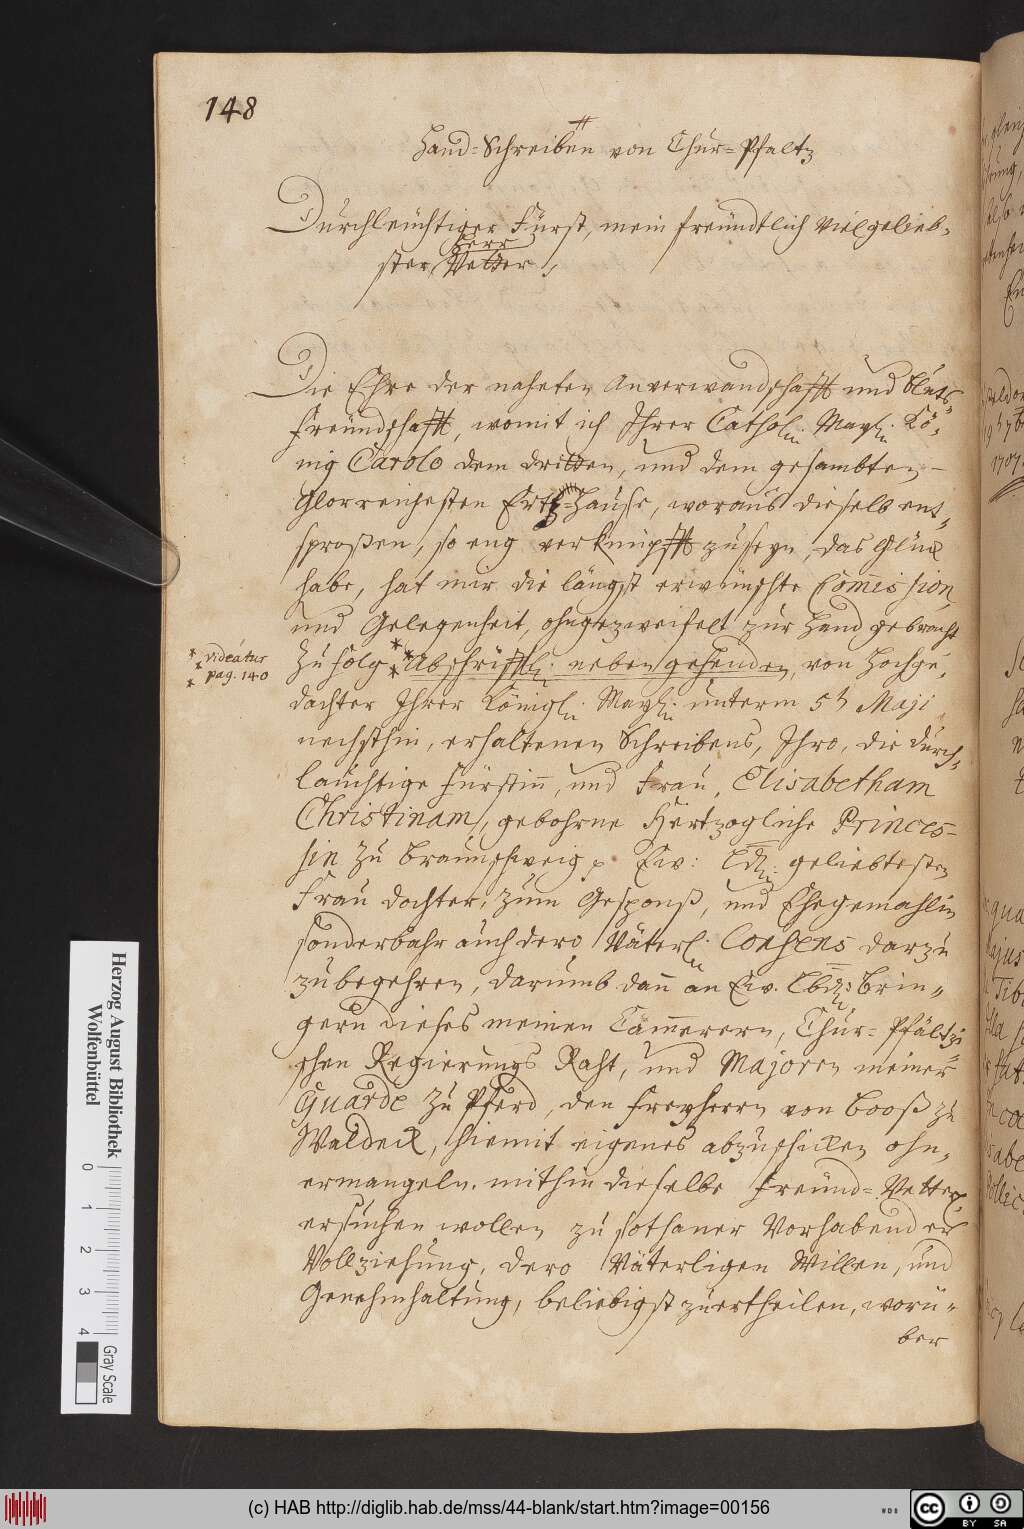 148
Hand-Schreiben von Chur-Pfaltz
Durchleüchtiger Fürst, mein freündtlich vielgelieb-
Herr
ster Vetter,
Die Ehre der naheten Anverwandschafft und Bluts-
Freündschafft, womit ich Ihrer Cathol. Mayl. Kö-
nig Carolo dem dritten, und dem gesambten
Glorreichesten Ertz-Hause, woraus dieselb ent-
sproßen, so eng verknüpfft zu seyn, das Glück
habe, hat mir die längst erwünschte Comission,
und Gelegenheit, ohngezweifelt zur Hand gebracht
Zu folg Abschrifftl. neben gehenden, von Hochge-
videatur
pag. 140
dachter Ihrer Königl. Mayl. unterm 5t Maji
nechsthin, erhaltenen Schreibens, Ihro, die Durch-
lauchtige Fürstin, und Frau, Elisabetham
Christinam, gebohrne Hertzogliche Princes-
sin zu Braunschweig p Ew: Ldn. geliebtesten
Frau Dochter, zum Gesponß, und Ehegemahlin
sonderbahr auch dero Väterl. Consens darzu
zubegehren, darumb dan an Ew. Lbd: Brin-
gern dieses meinen Cämerern, Chur-Pfältzi-
schen Regierungs Raht, und Majoren meiner
Guarde zu Pferd, den Freyherrn von Booß zu
Waldeck, hiemit eigenes abzuschicken ohn-
ermangeln. mithin dieselbe Freünd-Vetterl.
ersuchen wollen zu sothaner Vorhabender
Vollziehung, dero Väterligen Willen, und
Genehmhaltung, beliebigst zuertheilen, worü-
ber
Herzog August Bibliothek
Wolfenbüttel
0 1 2 3 4
Gray Scale
(c) HAB http://diglib.hab.de/mss/44-blank/start.htm?image=00156
WDB
cc BY SA